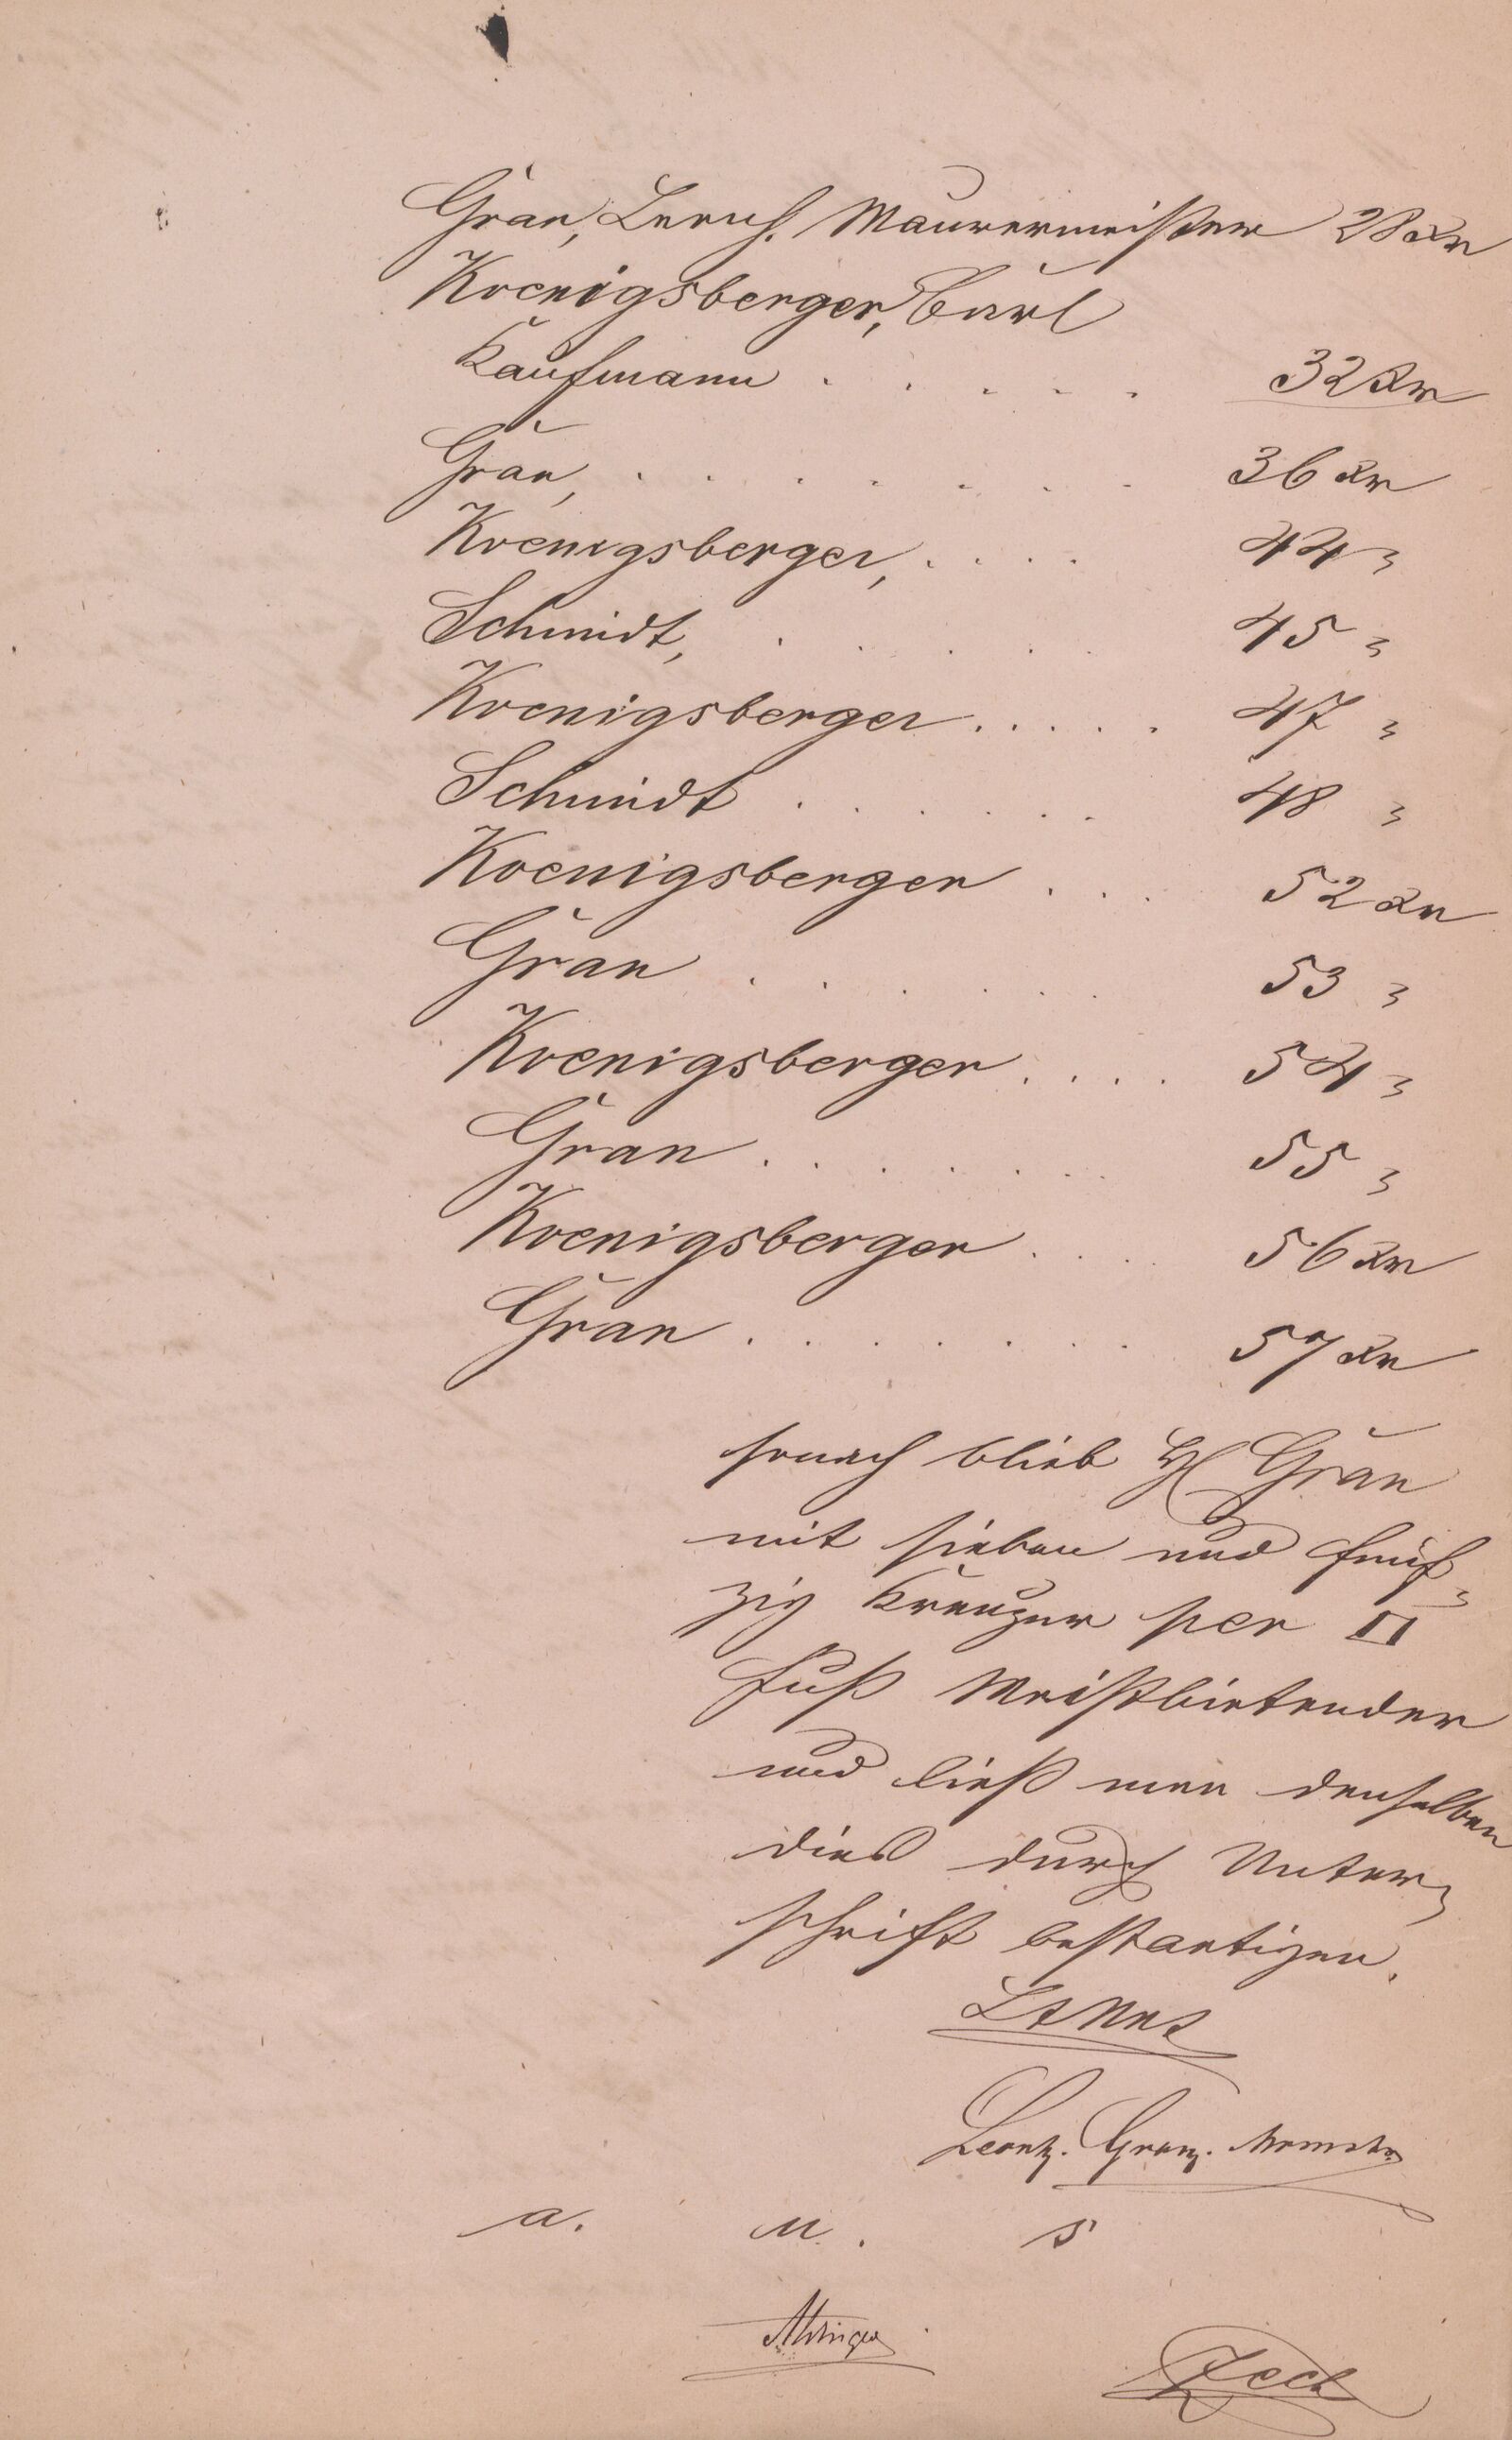 Gran, Leonh. Maurermeister 28 Xr
Koenigsberger, Carl
Kaufmann . . . . . 32 Xr
Gran, . . . . . . . 36 Xr
Koenigsberger, . . . . 44 "
Schmidt, . . . . . 45 "
Koenigsberger . . . . . 47 "
Schmidt . . . . . 48 "
Koenigsberger . . . 52 Xr
Gran . . . . . . 53 "
Koenigsberger . . . . 54 "
Gran . . . . . . . 55 "
Koenigsberger . . . 56 Xr
Gran . . . . . . . 57 Xr
sonach blieb H Gran
mit sieben und fünf-
zig Kreuzer per □
Fuß Meistbietender
und ließ man denselben
dies durch Unter-
schrift bestaetigen.
Leonh. Gran.
a. u. s
Zech